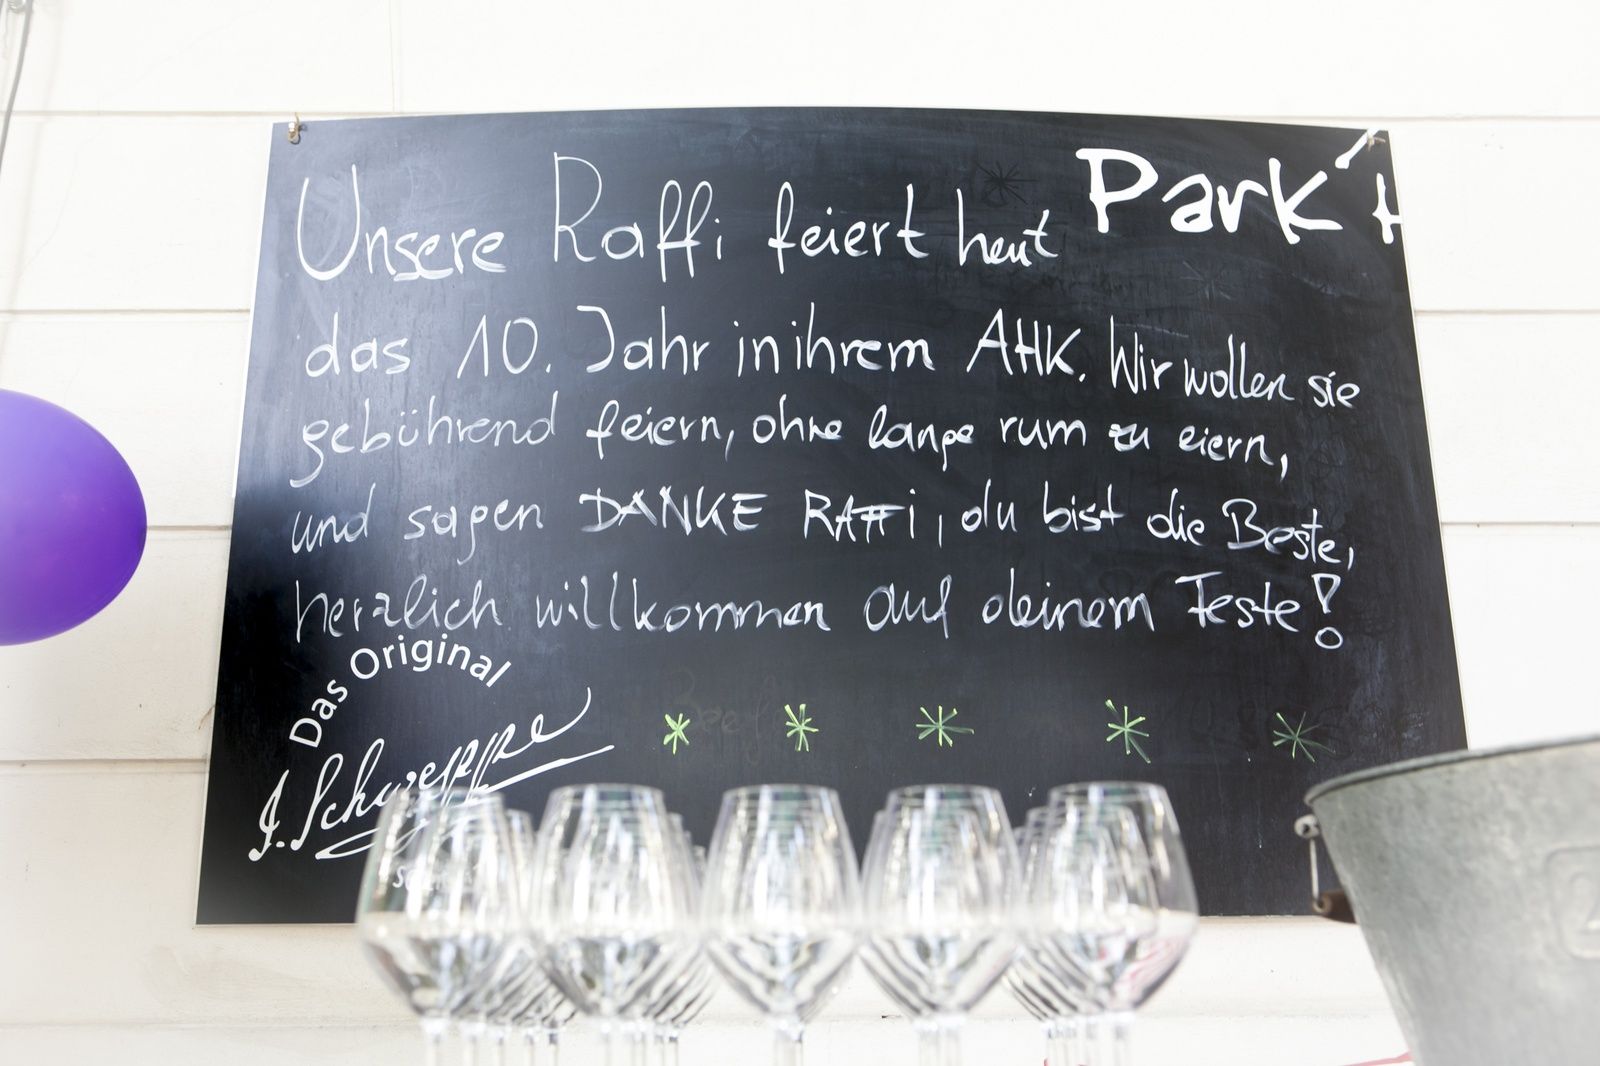 Park
Unsere Raffi feiert heut
das 10. Jahr in ihrem AHK. Wir wollen sie
gebührend feiern, ohne lange rum zu eiern,
und sagen DANKE RAffi, du bist die Beste,
herzlich willkommen auf deinem Feste!
Das Original
J. Schweppe